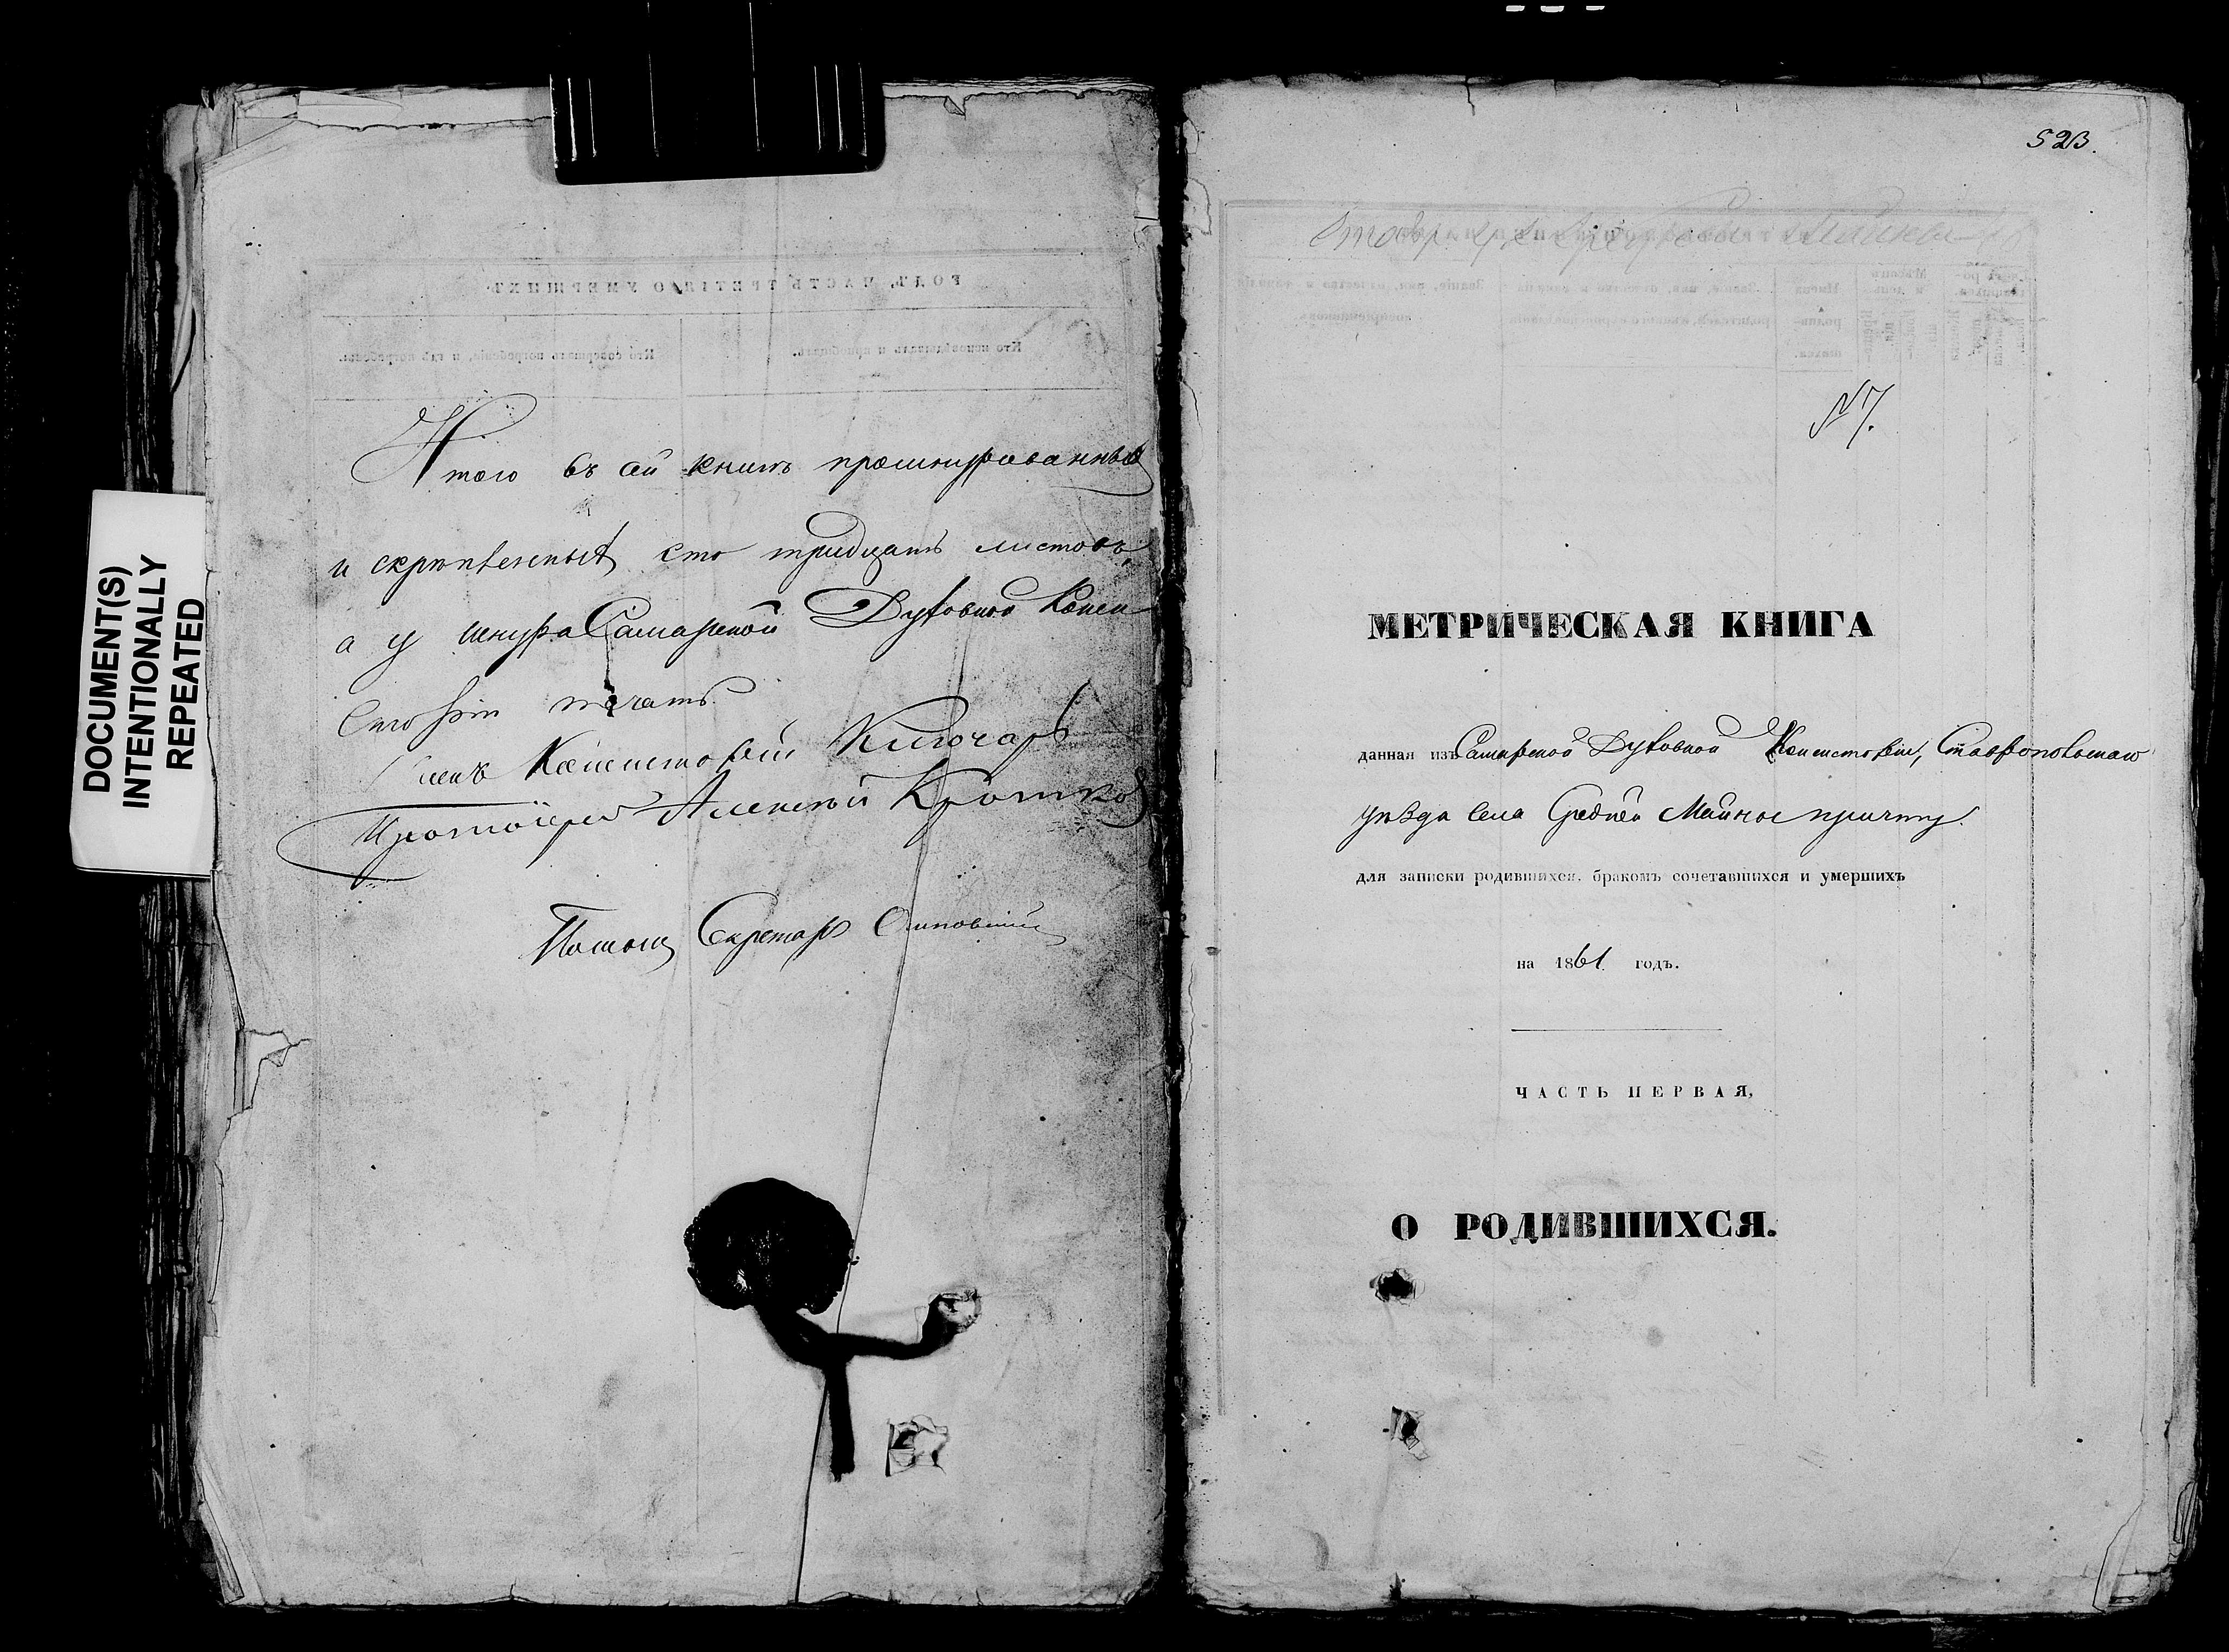 DOCUMENT(S)
INTENTIONALLY
REPEATED
Итого въ сей книгѣ прошнурованныхъ
и скрѣпленныхъ сто тридцать листовъ,
а у шнура Самарской Духовной Конси
сторіи печать.
Членъ Консисторіи Ключарь
Протоіерей Алексѣй
Помощ Секретаря
523.
№7.
МЕТРИЧЕСКАЯ КНИГА
данная изъ Самарской Духовной Консисторіи, Ставропольскаго
уѣзда села Средней Майны причту.
для записки родившихся, бракомъ сочетавшихся и умершихъ
на 1861 годъ.
ЧАСТЬ ПЕРВАЯ,
О РОДИВШИХСЯ.